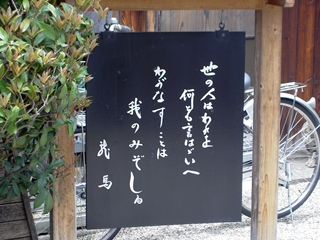 世の人はわれを
何とも言はばいへ
わがなすことは
我のみぞしる
龍馬